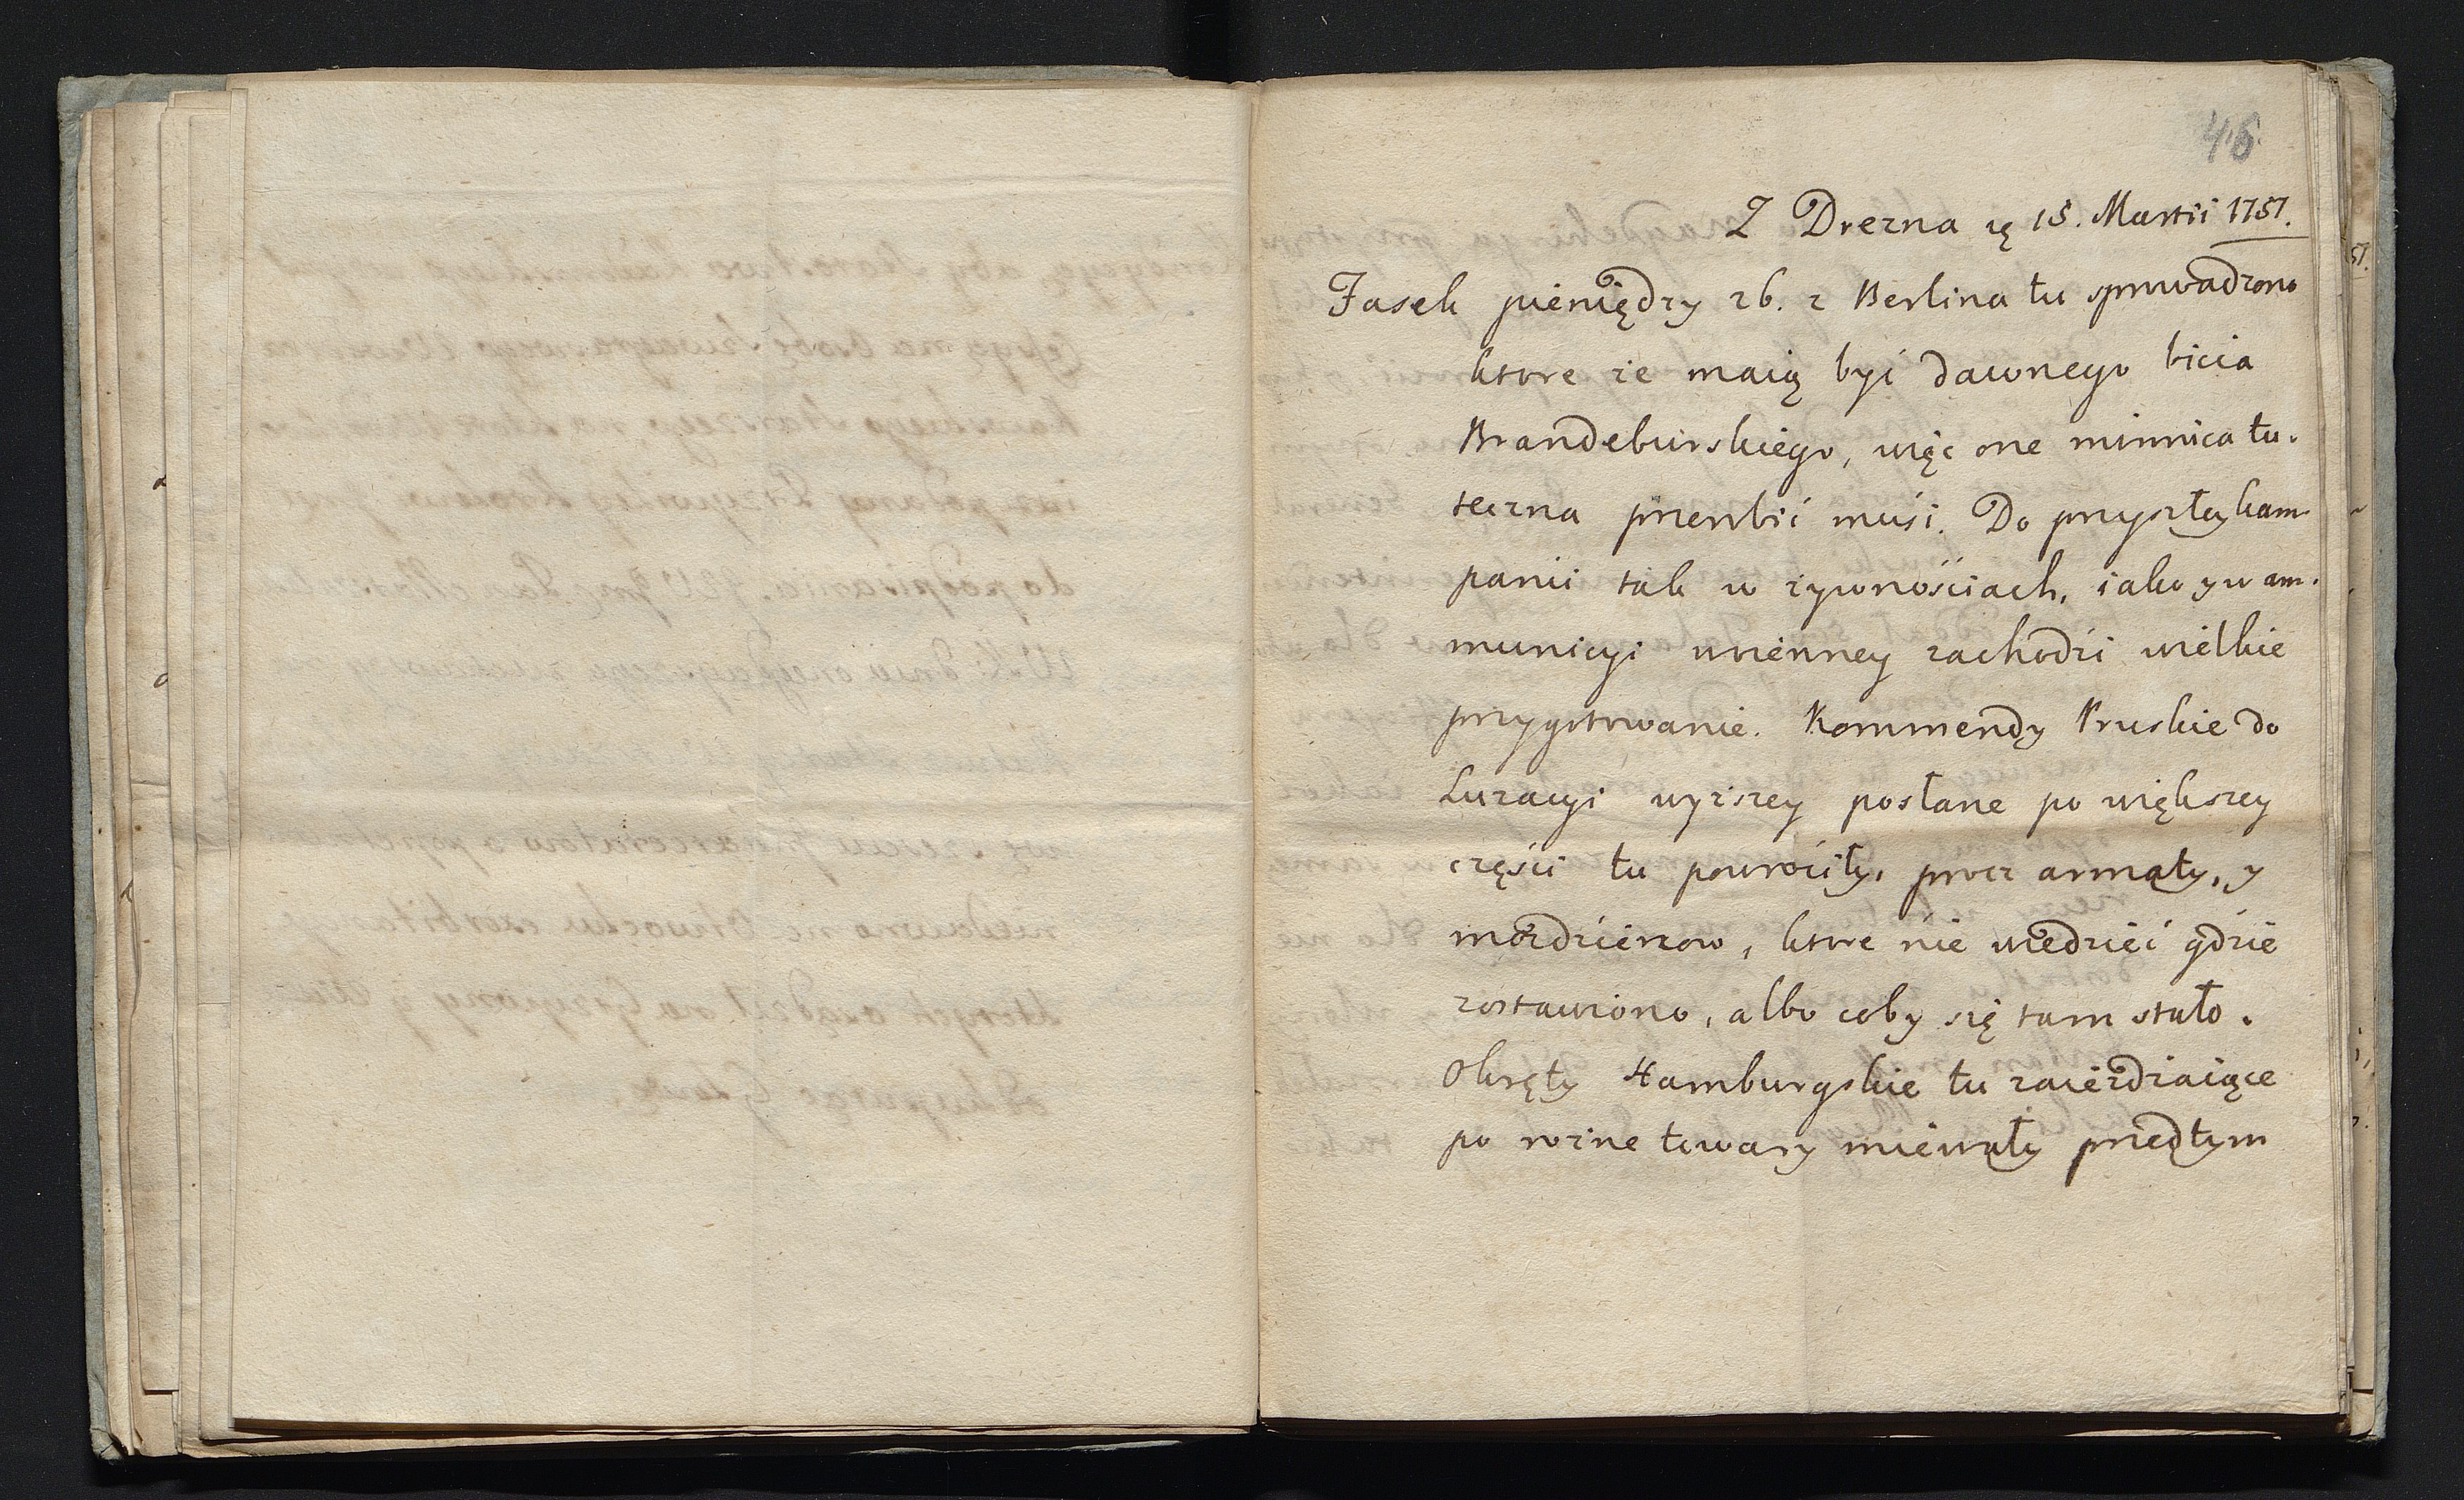 46
Z Drezna 15. Martii 1757.
Fasek pieniędzy 26. z Berlina tu sprowadzono
ktore że maią być dawnego bicia
Brandeburskiego, więc one minnica tu-
teczna przerobić muśi. Do przyszłey kam-
panii tak w żywnośćiach, iako y w am-
municyi woienney zachodźi wielkie
przygotowanie. Kommendy Pruskie do
Luzacyi wyższey posłane po większey
częśći tu powroćiły, procz armaty, y
mozdźierzow, ktore nie wiedźieć gdźie
zostawiono, albo coby się tam stało.
Okręty Hamburgskie tu zaieżdzaiące
po rożne towary miewały przedtym